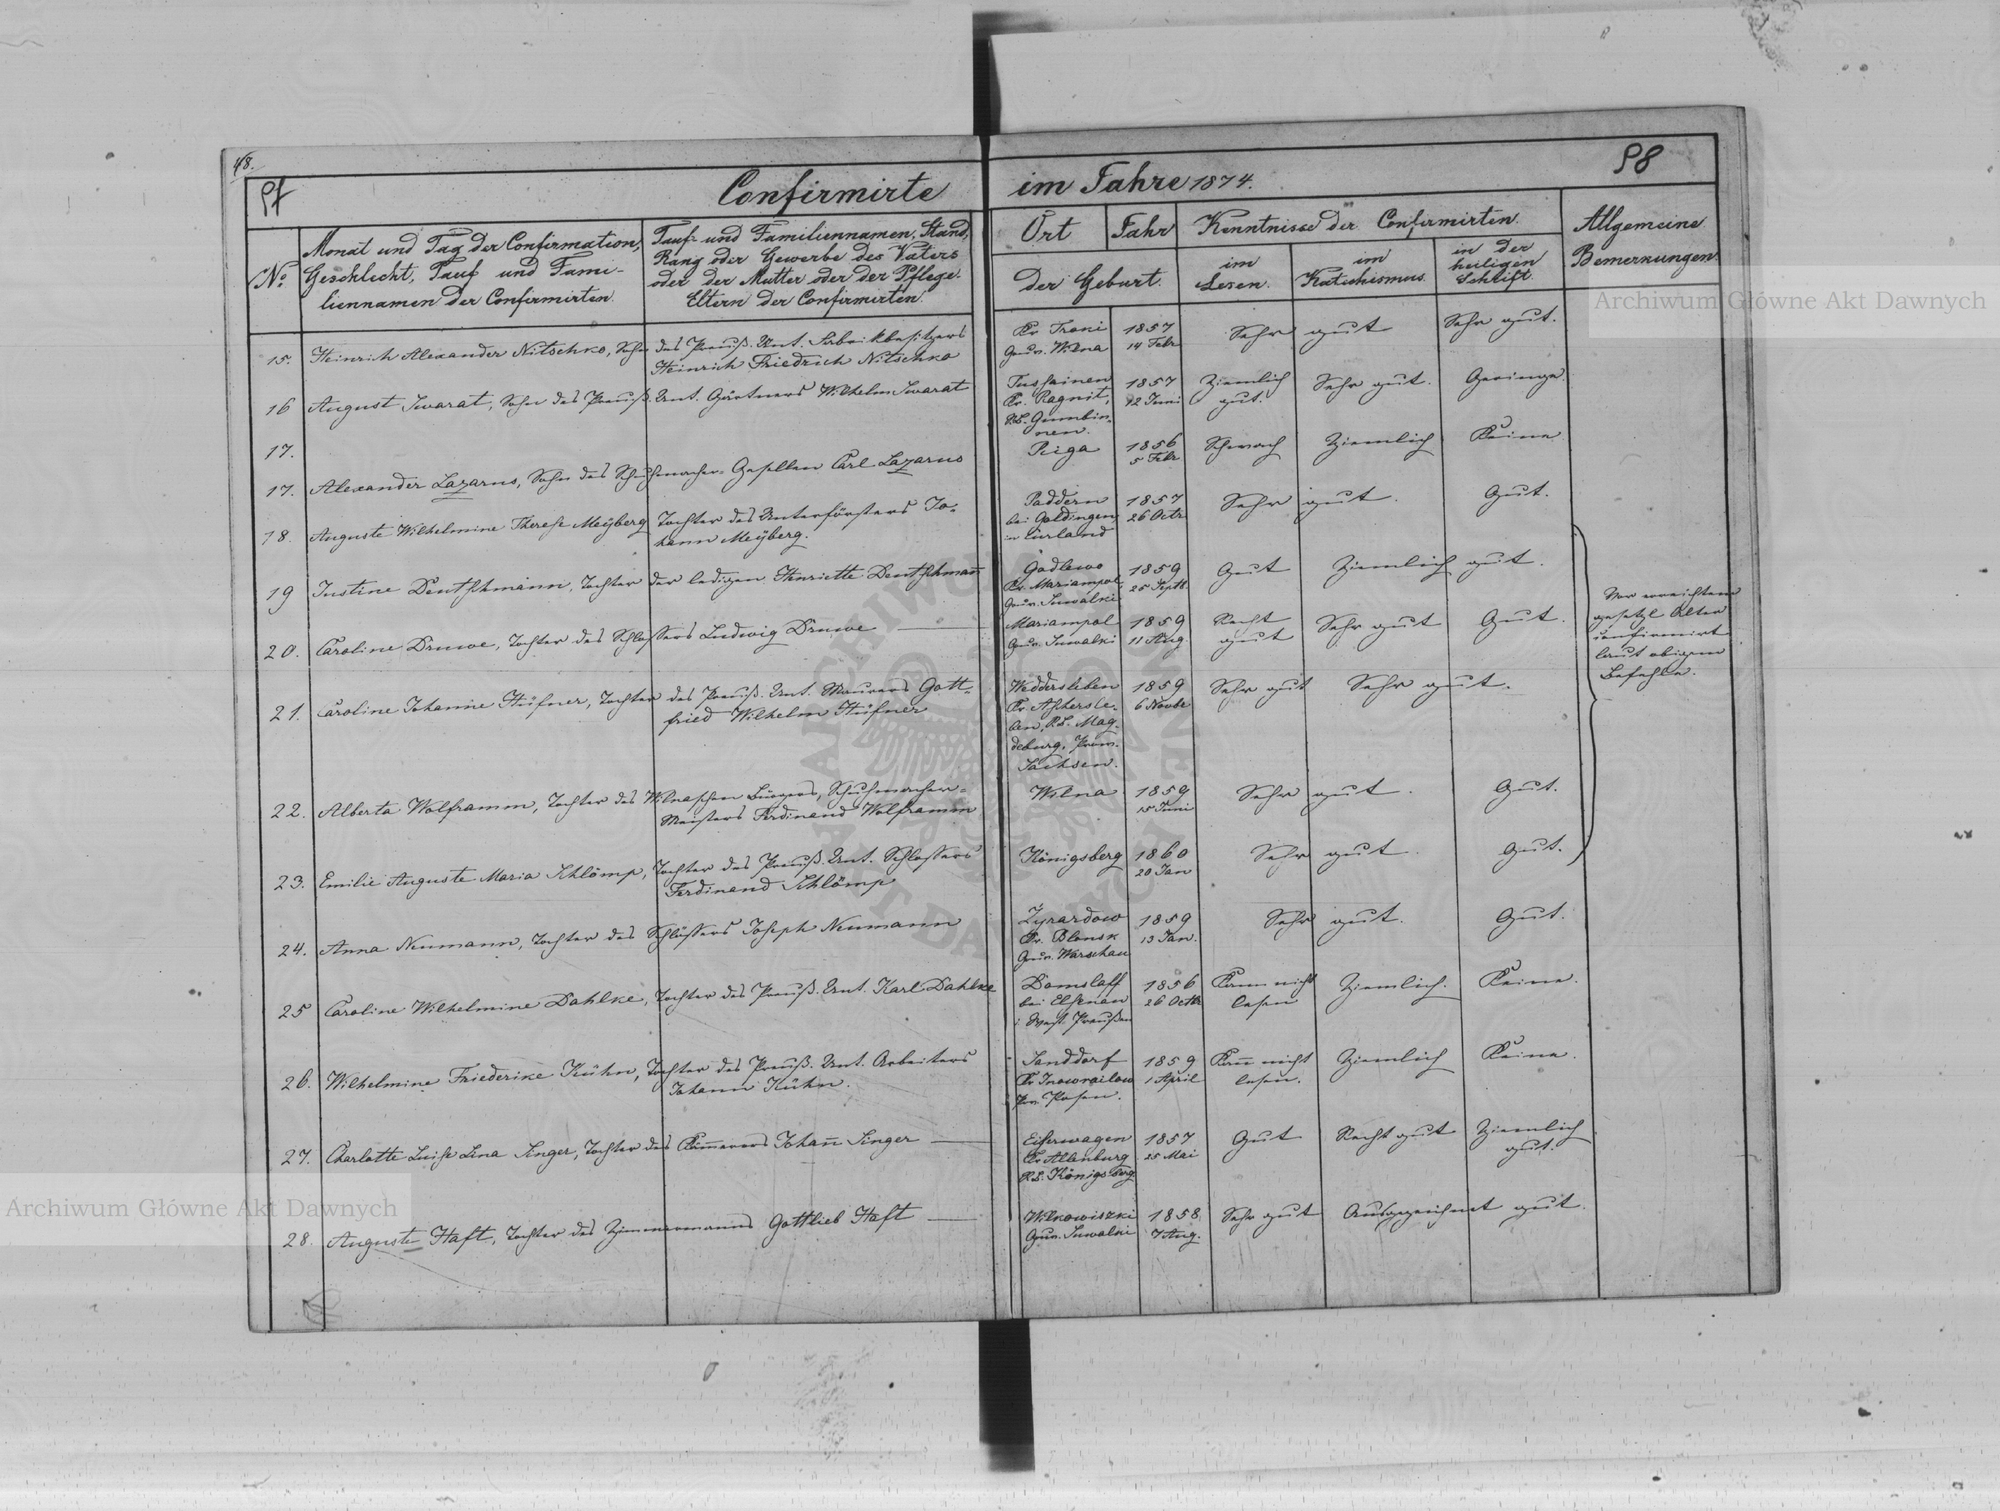 48.
Confirmirte im Jahre 1874.
58
No
Monat und Tag der Confirmation,
Geschlecht, Tauf und Fami-
liennamen der Confirmirten.
Tauf- und Familiennamen, Stand,
Rang oder Gewerbe des Vaters
oder der Mutter oder der Pflege-
Eltern der Confirmirten.
Ort Jahr
der Geburt.
Kenntnisse der Confirmirten.
im
Lesen.
im
Katechismus
in der
heiligen
Schrift.
Allgemeine
Bemerkungen.
15. Heinrich Alexander Nitschko, Sohn des Preuß. Unt. Fabrikbesitzers
Heinrich Friedrich Nitschko
Kr. Troki 1857 Sehr gut Sehr gut.
Gouv. Wilna 14 Febr
16 August Swarat, Sohn des Preuß. Unt. Gärtners Wilhelm Swarat
Tussainen 1857 Ziemlich Sehr gut. Geringe
Kr. Ragnit, 12 Juni gut.
R.B. Gumbin-
nen.
17.
Riga 1856 Schwach Ziemlich Keine
5 Febr
17. Alexander Lazarus, Sohn des Schuhmacher-Gesellen Carl Lazarus
18. Auguste Wilhelmine Therese Meÿberg Tochter des Unterförsters Jo-
hann Meÿberg.
Paddern 1857 Sehr gut. Gut.
bei Goldingen 26 Octr
in Curland
19 Justine Deutschmann, Tochter der ledigen Henriette Deutschmañ
Godlewo 1859 Gut Ziemlich gut.
Kr. Mariampol 25 Septb
Gouv. Suwalki
20. Caroline Druwe, Tochter des Schlossers Ludwig Druwe
Mariampol 1859 Recht Sehr gut Gut.
Gouv. Suwalki 11 Aug gut
21. Caroline Johanne Hüfner, Tochter des Preuß. Unt. Maurers Gott-
fried Wilhelm Hüfner
Weddersleben 1859 Sehr gut Sehr gut.
Kr. Aschersle- 6 Novbr
ben, R.B. Mag-
deburg, Prov.
Sachsen.
Vor erreichtem
gesetzl. Alter
confirmirt
laut obigem
Befehle.
22. Alberta Wolframm, Tochter des Wilnaschen Bürgers, Schuhmacher-
Meisters Ferdinand Wolframm
Wilna 1859 Sehr gut. Gut.
15 Juni
23. Emilie Auguste Maria Schlömp, Tochter des Preuß. Unt. Schlossers
Ferdinand Schlömp
Königsberg 1860 Sehr gut. Gut.
20 Jan
24. Anna Neumann, Tochter des Schlossers Joseph Neumann
Zyrardow 1859 Sehr gut. Gut.
Kr. Blonsk 13 Jan.
Gouv. Warschau
25 Caroline Wilhelmine Dahlke, Tochter des Preuß. Unt. Karl Dahlke
Domslaff 1856 Kann nicht Ziemlich. Keine.
bei Elsenau 26 Octb lesen
i. West. Preußen
26. Wilhelmine Friederike Kühn, Tochter des Preuß. Unt. Arbeiters
Johann Kühn.
Sanddorf 1859 Kañ nicht Ziemlich Keine.
Kr. Inowrazlaw 1 April lesen.
Prv. Posen.
27. Charlotte Luise Lina Singer, Tochter des Kämmerers Johañ Singer
Eiserwagen 1857 Gut Recht gut Ziemlich
Kr. Allenburg 25 Mai gut.
R.B. Königsberg
28. Auguste Haft, Tochter des Zimmermanns Gottlieb Haft
Wilkowiszki 1858 Sehr gut Ausgezeichnet gut.
Gouv. Suwalki 7 Aug.
Archiwum Główne Akt Dawnych
Archiwum Główne Akt Dawnych